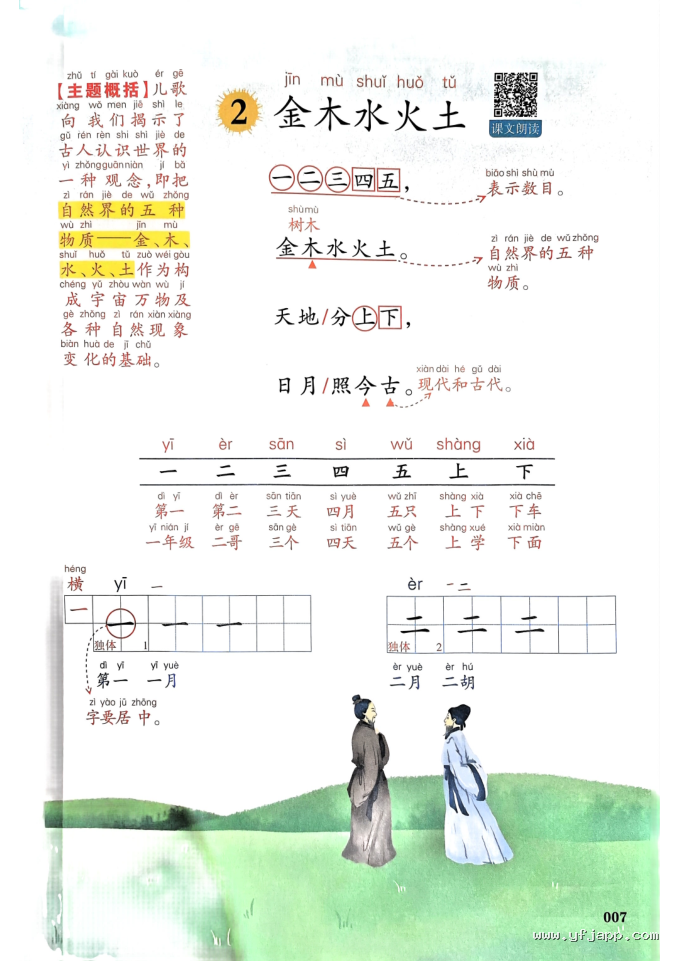 zhǔ tí gài kuò ér gē
【主题概括】儿歌
xiàng wǒ men jiē shì le
向我们揭示了
gǔ rén rèn shi shì jiè de
古人认识世界的
yì zhǒng guān niàn jí bǎ
一种观念,即把
zì rán jiè de wǔ zhǒng
自然界的五种
wù zhì jīn mù
物质——金、木、
shuǐ huǒ tǔ zuò wéi gòu
水、火、土作为构
chéng yǔ zhòu wàn wù jí
成宇宙万物及
gè zhǒng zì rán xiàn xiàng
各种自然现象
biàn huà de jī chǔ
变化的基础。
jīn mù shuǐ huǒ tǔ
2 金木水火土
课文朗读
一二三四五,
biǎo shì shù mù
表示数目。
shù mù
树木
金木水火土。
zì rán jiè de wǔ zhǒng
自然界的五种
wù zhì
物质。
天地/分上下,
日月/照今古。
xiàn dài hé gǔ dài
现代和古代。
yī èr sān sì wǔ shàng xià
一 二 三 四 五 上 下
dì yī dì èr sān tiān sì yuè wǔ zhī shàng xià xià chē
第一 第二 三天 四月 五只 上下 下车
yī nián jí èr gē sān gè sì tiān wǔ gè shàng xué xià miàn
一年级 二哥 三个 四天 五个 上学 下面
héng
横 yī 一
一 一 一 一
独体 1
dì yī yī yuè
第一 一月
zì yào jū zhōng
字要居中。
èr 一 二
二 二 二
独体 2
èr yuè èr hú
二月 二胡
007
www.yfjapp.com